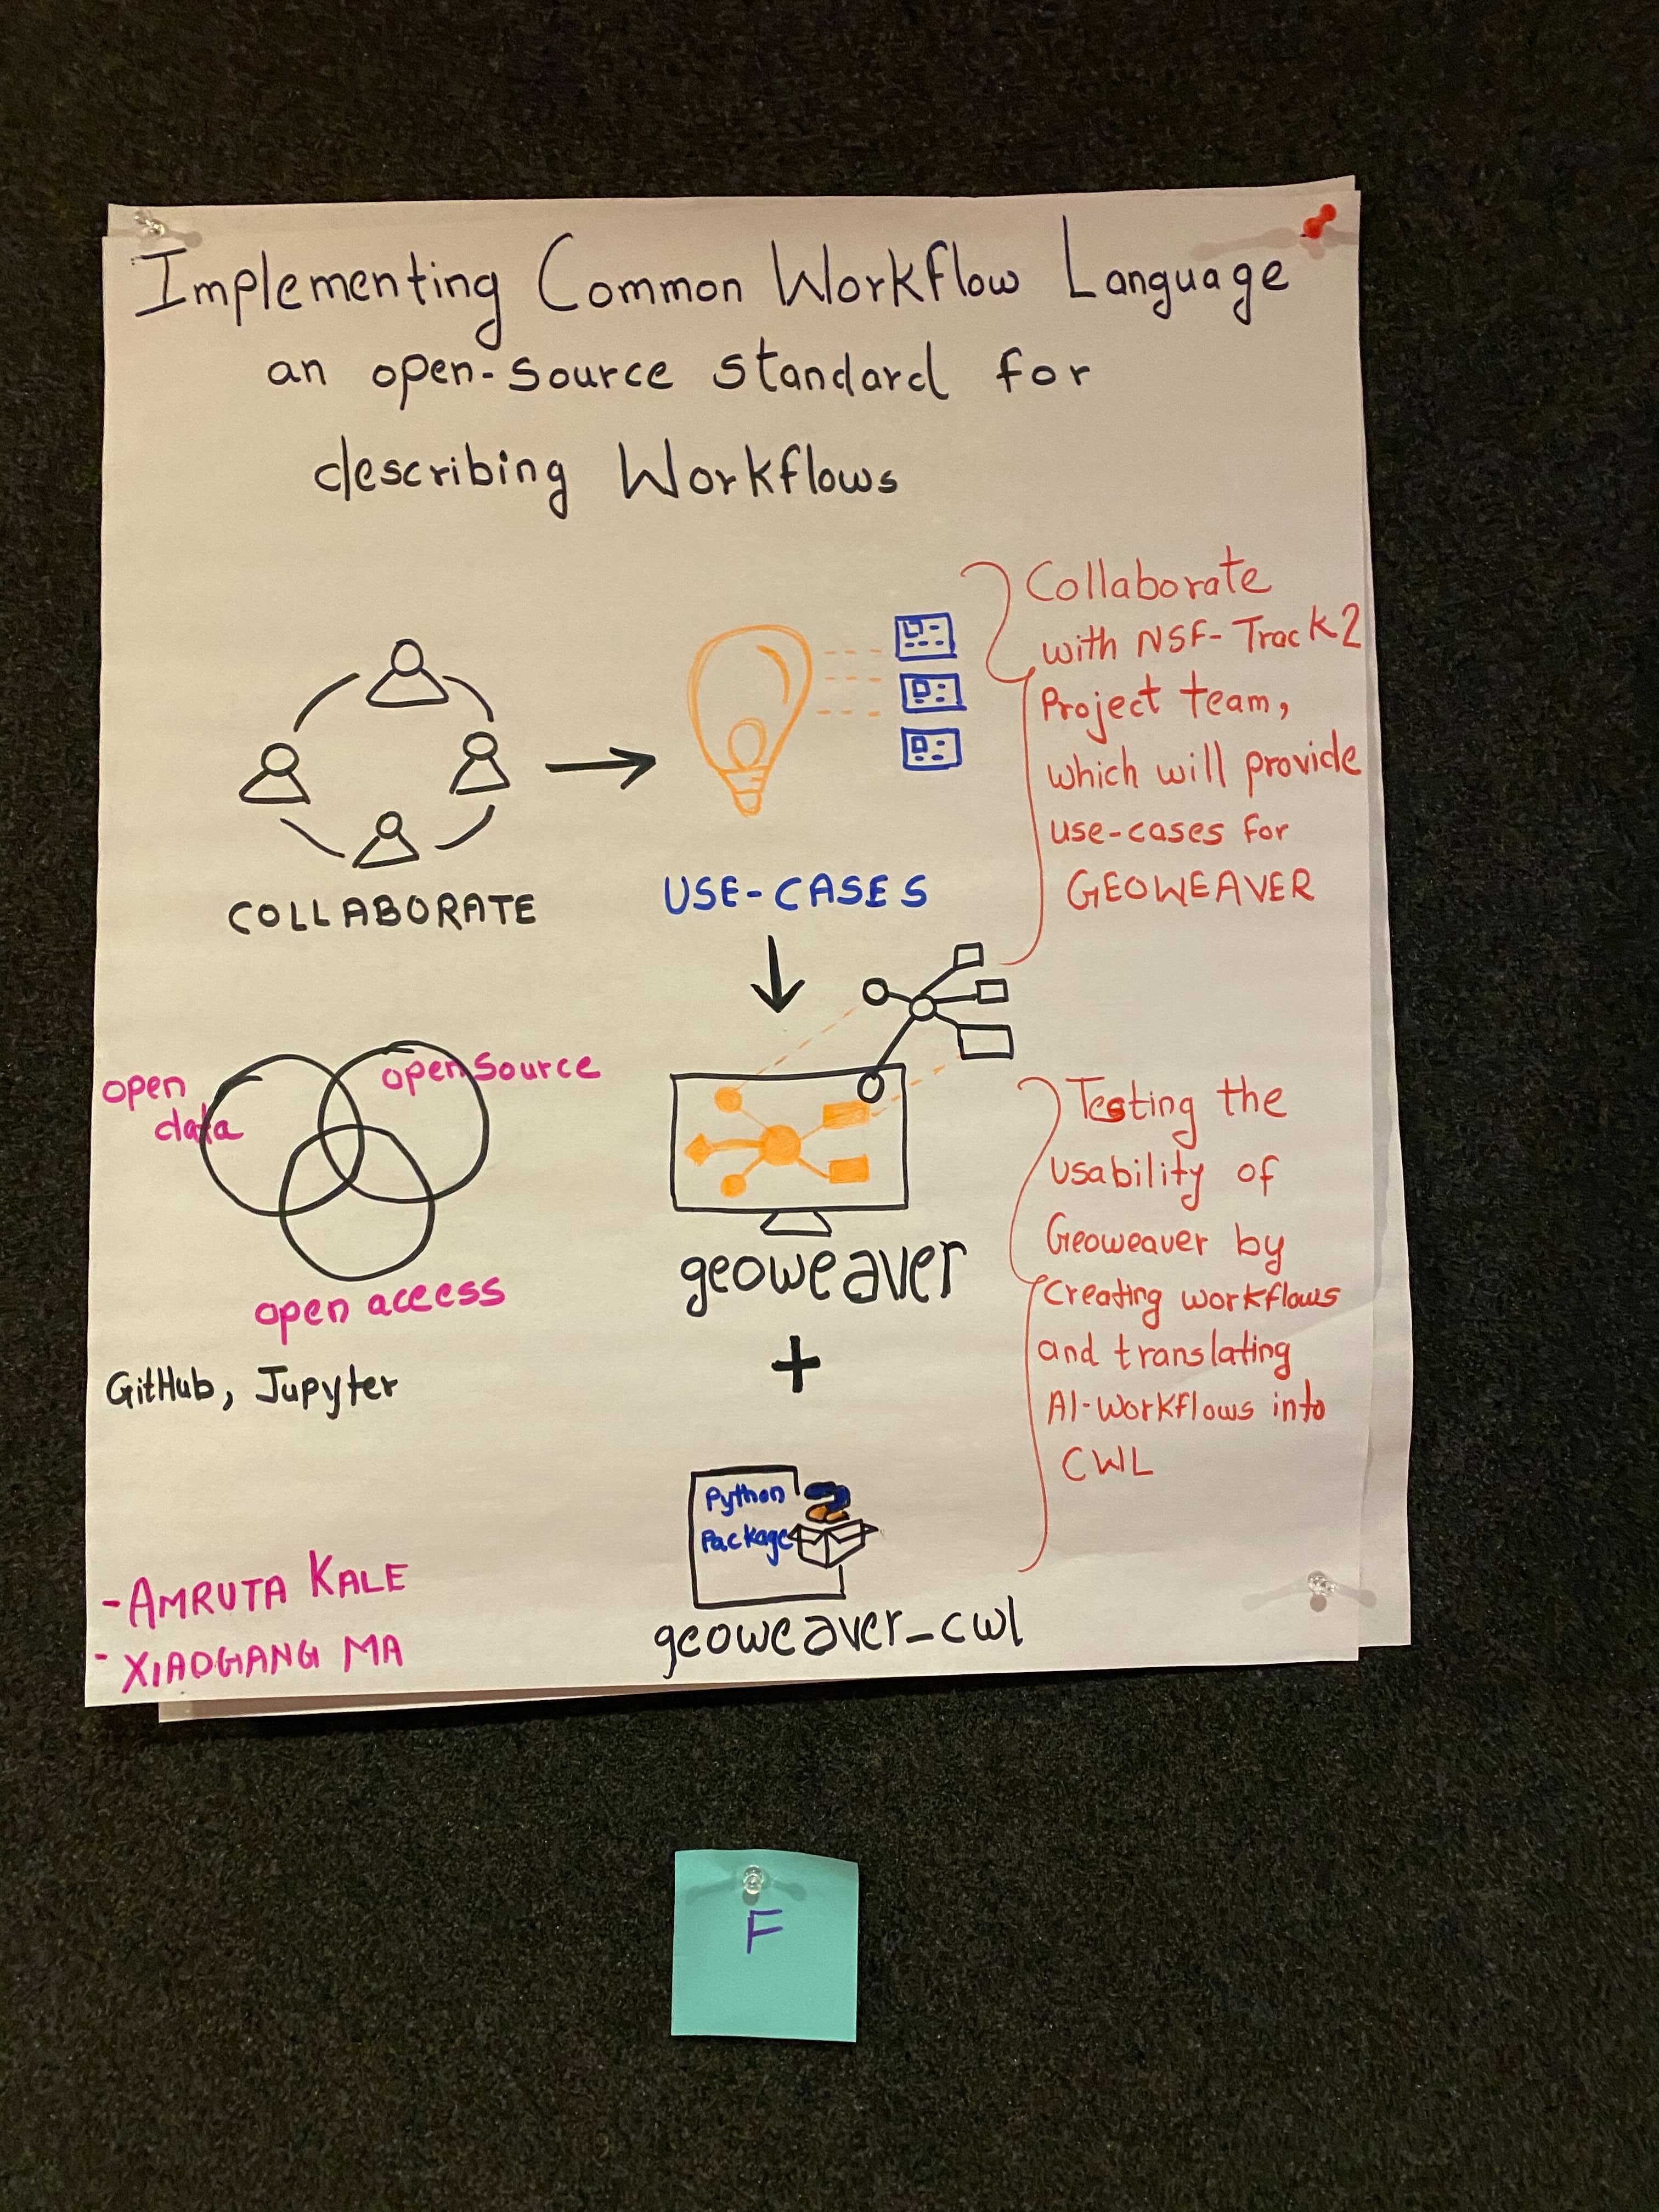 Implementing Common Workflow Language
an open-source standard for
describing Workflows
COLLABORATE
USE-CASES
Collaborate
with NSF-Track2
Project team,
which will provide
use-cases for
GEOWEAVER
open
data
open source
open access
GitHub, Jupyter
geoweaver
+
Python
Package
geoweaver_cwl
Testing the
usability of
Geoweaver by
Creating workflows
and translating
AI-Workflows into
CWL
- AMRUTA KALE
- XIAOGANG MA
F